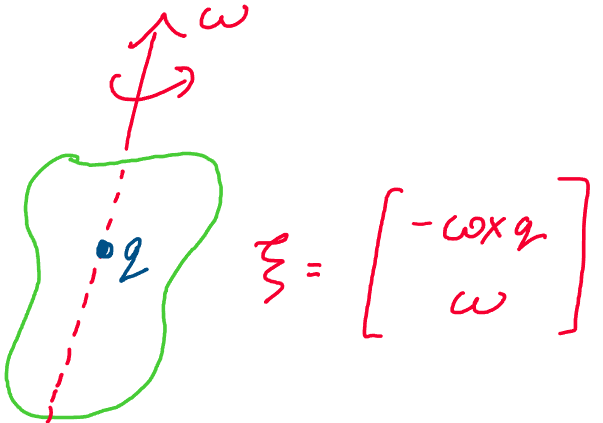 ω
q
ξ = [ -ω×q
ω ]